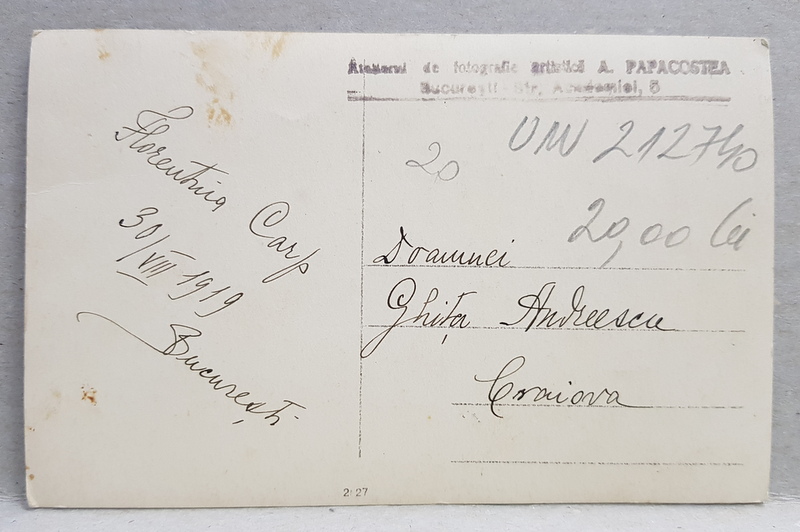 Atelierul de fotografie artistică A. PAPACOSTEA
Bucureşti - Str. Academiei, 5
Florentina Carp
30/VIII 1919
Bucureşti
20
UW 212740
20,00 lei
Doamnei
Ghiţa Andreescu
Craiova
2127